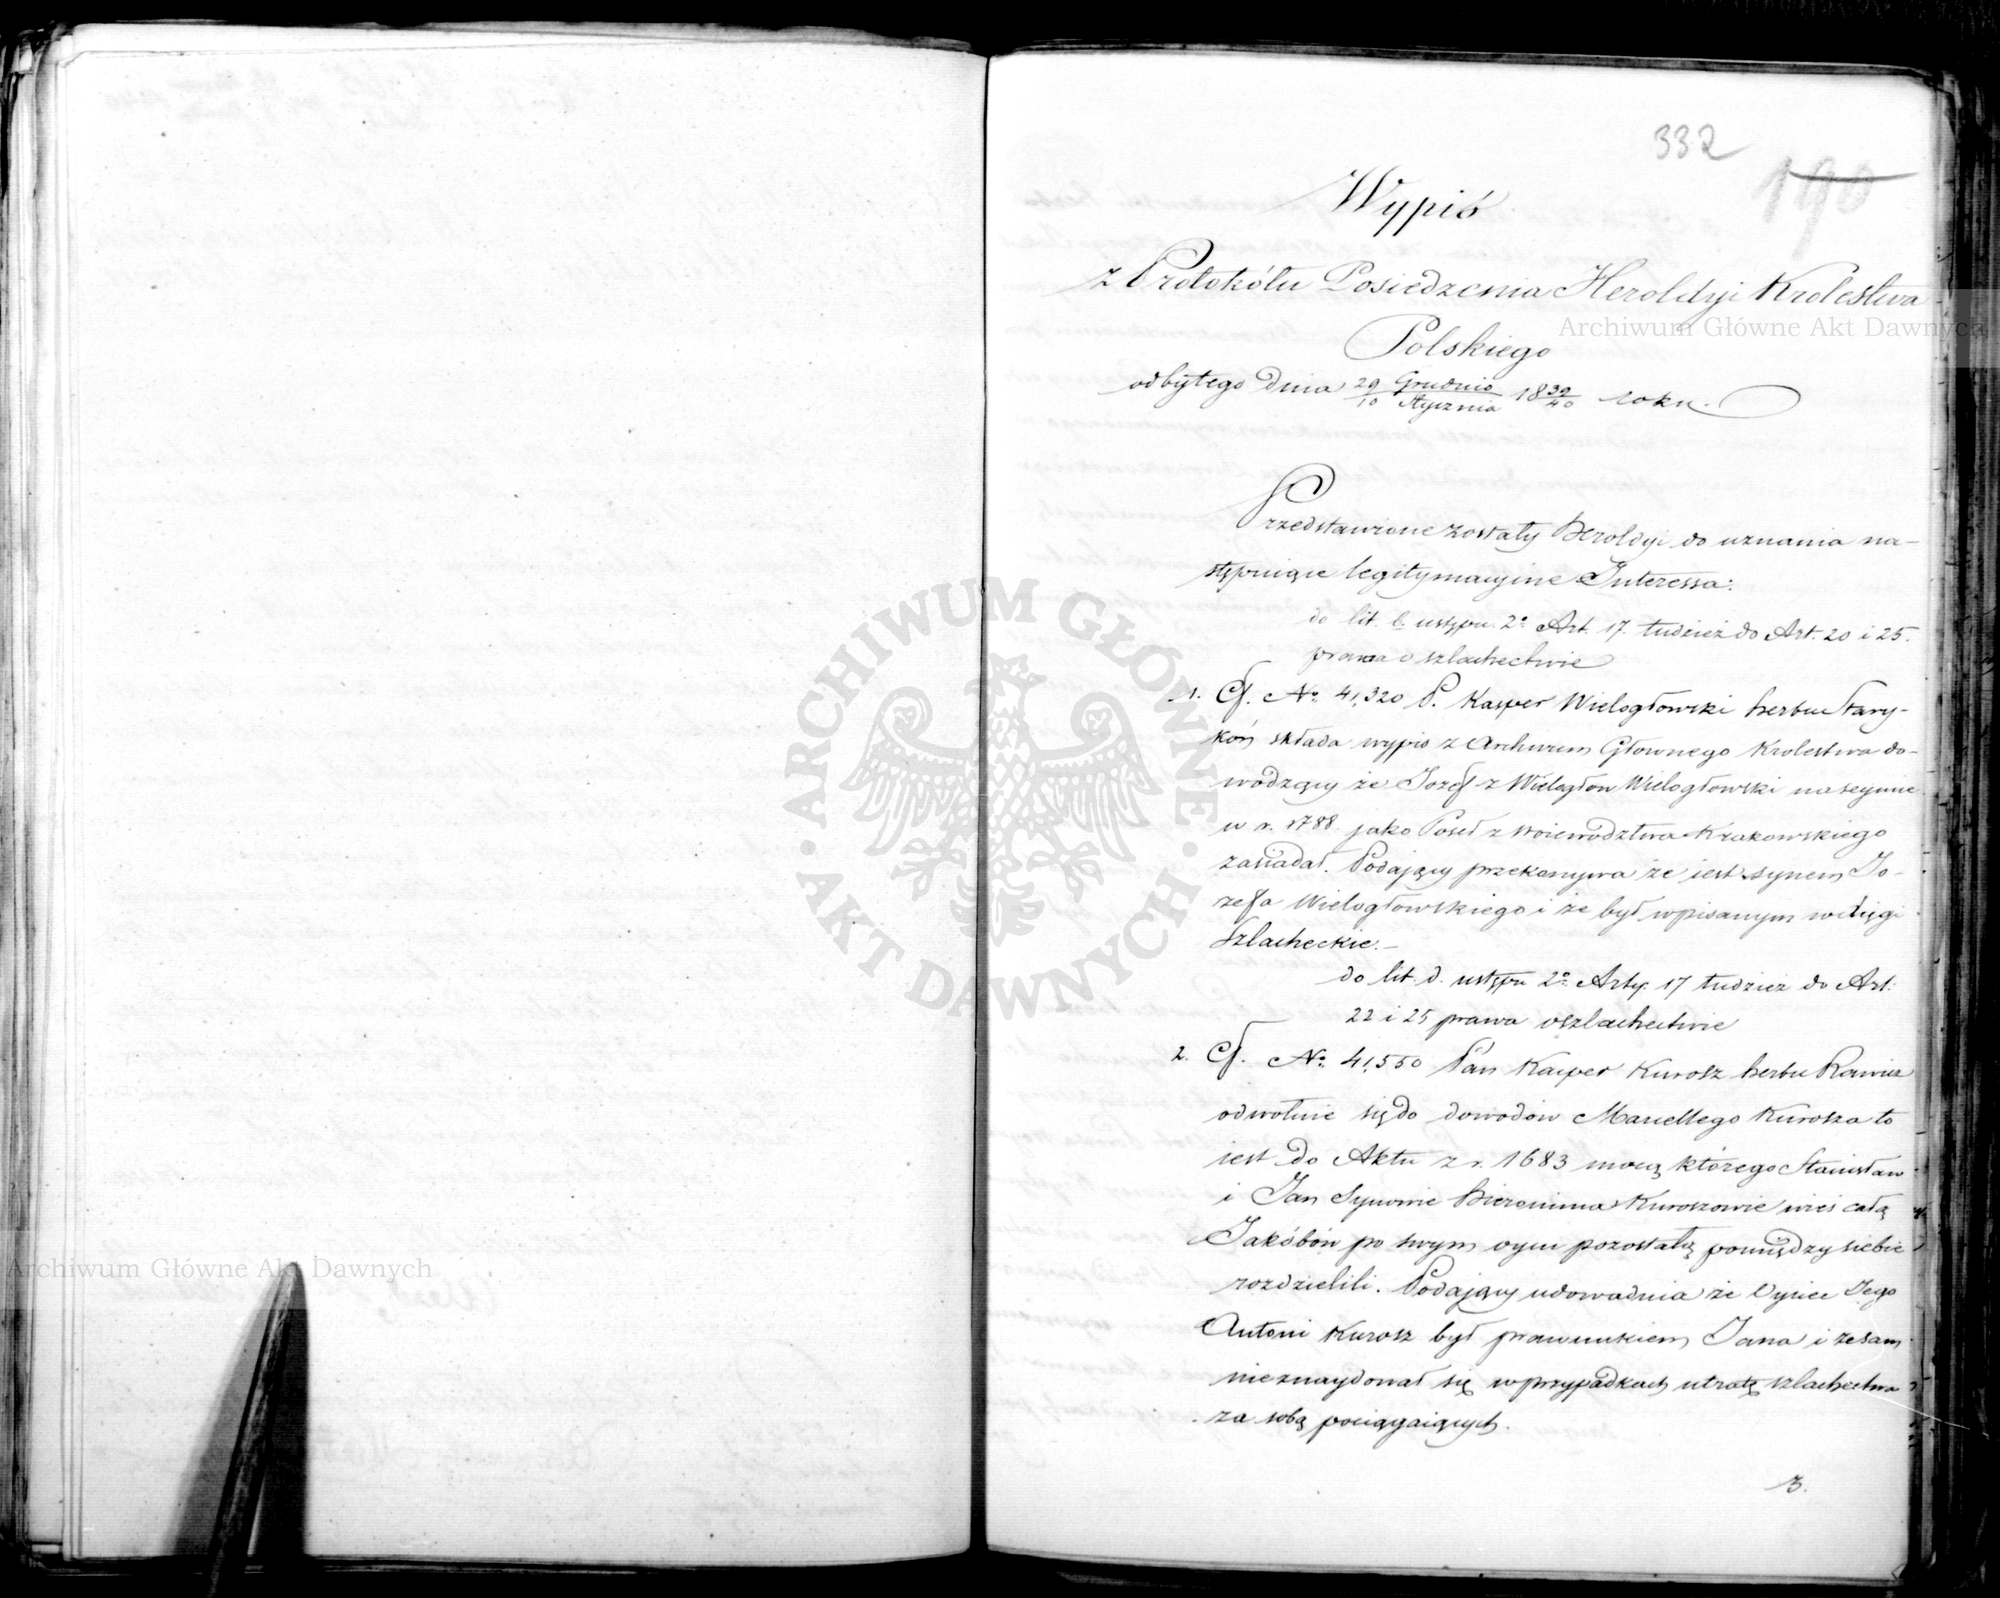 332
190
Wypis
z Protokółu Posiedzenia Heroldyi Krolestwa
Polskiego
odbytego dnia 29 Grudnia / 10 Stycznia 18 39/40 roku.
Przedstawione zostały Heroldyi do uznania na-
stępuiące legitymacyine Interessa:
do lit. b. ustępu 2º Art. 17. tudzież do Art. 20 i 25.
prawa o szlachectwie
1. Cf. No. 41,320 P. Kasper Wielogłowski herbu Stary-
koń składa wypis z Archiwum Głownego Krolestwa do-
wodzący że Jozef z Wielogłow Wielogłowski na seymie
w r. 1788. jako Poseł z woiewodztwa Krakowskiego
zasiadał. Podający przekonywa że iest synem Jo-
zefa Wielogłowskiego i że był wpisanym w xięgi
Szlacheckie.-
do lit. d. ustępu 2º Arty. 17 tudzież do Art:
22 i 25 prawa o szlachectwie
2. Cf. No. 41,550 Pan Kasper Kurosz herbu Rawicz
odwołuie się do dowodów Marcellego Kurosza to
iest do Aktu z r. 1683 mocą którego Stanisław
i Jan Synowie Hieronima Kuroszowie wieś całą
Jakóbów po swym oycu pozostałą pomiędzy siebie
rozdzielili. Podający udowadnia że Oyciec Jego
Antoni Kurosz był prawnukiem Jana i że sam
nieznaydował się w przypadkach utratę szlachectwa
za sobą pociągaiących.
3.
Archiwum Główne Akt Dawnych
Archiwum Główne Akt Dawnych
· ARCHIWUM GŁÓWNE · AKT DAWNYCH ·